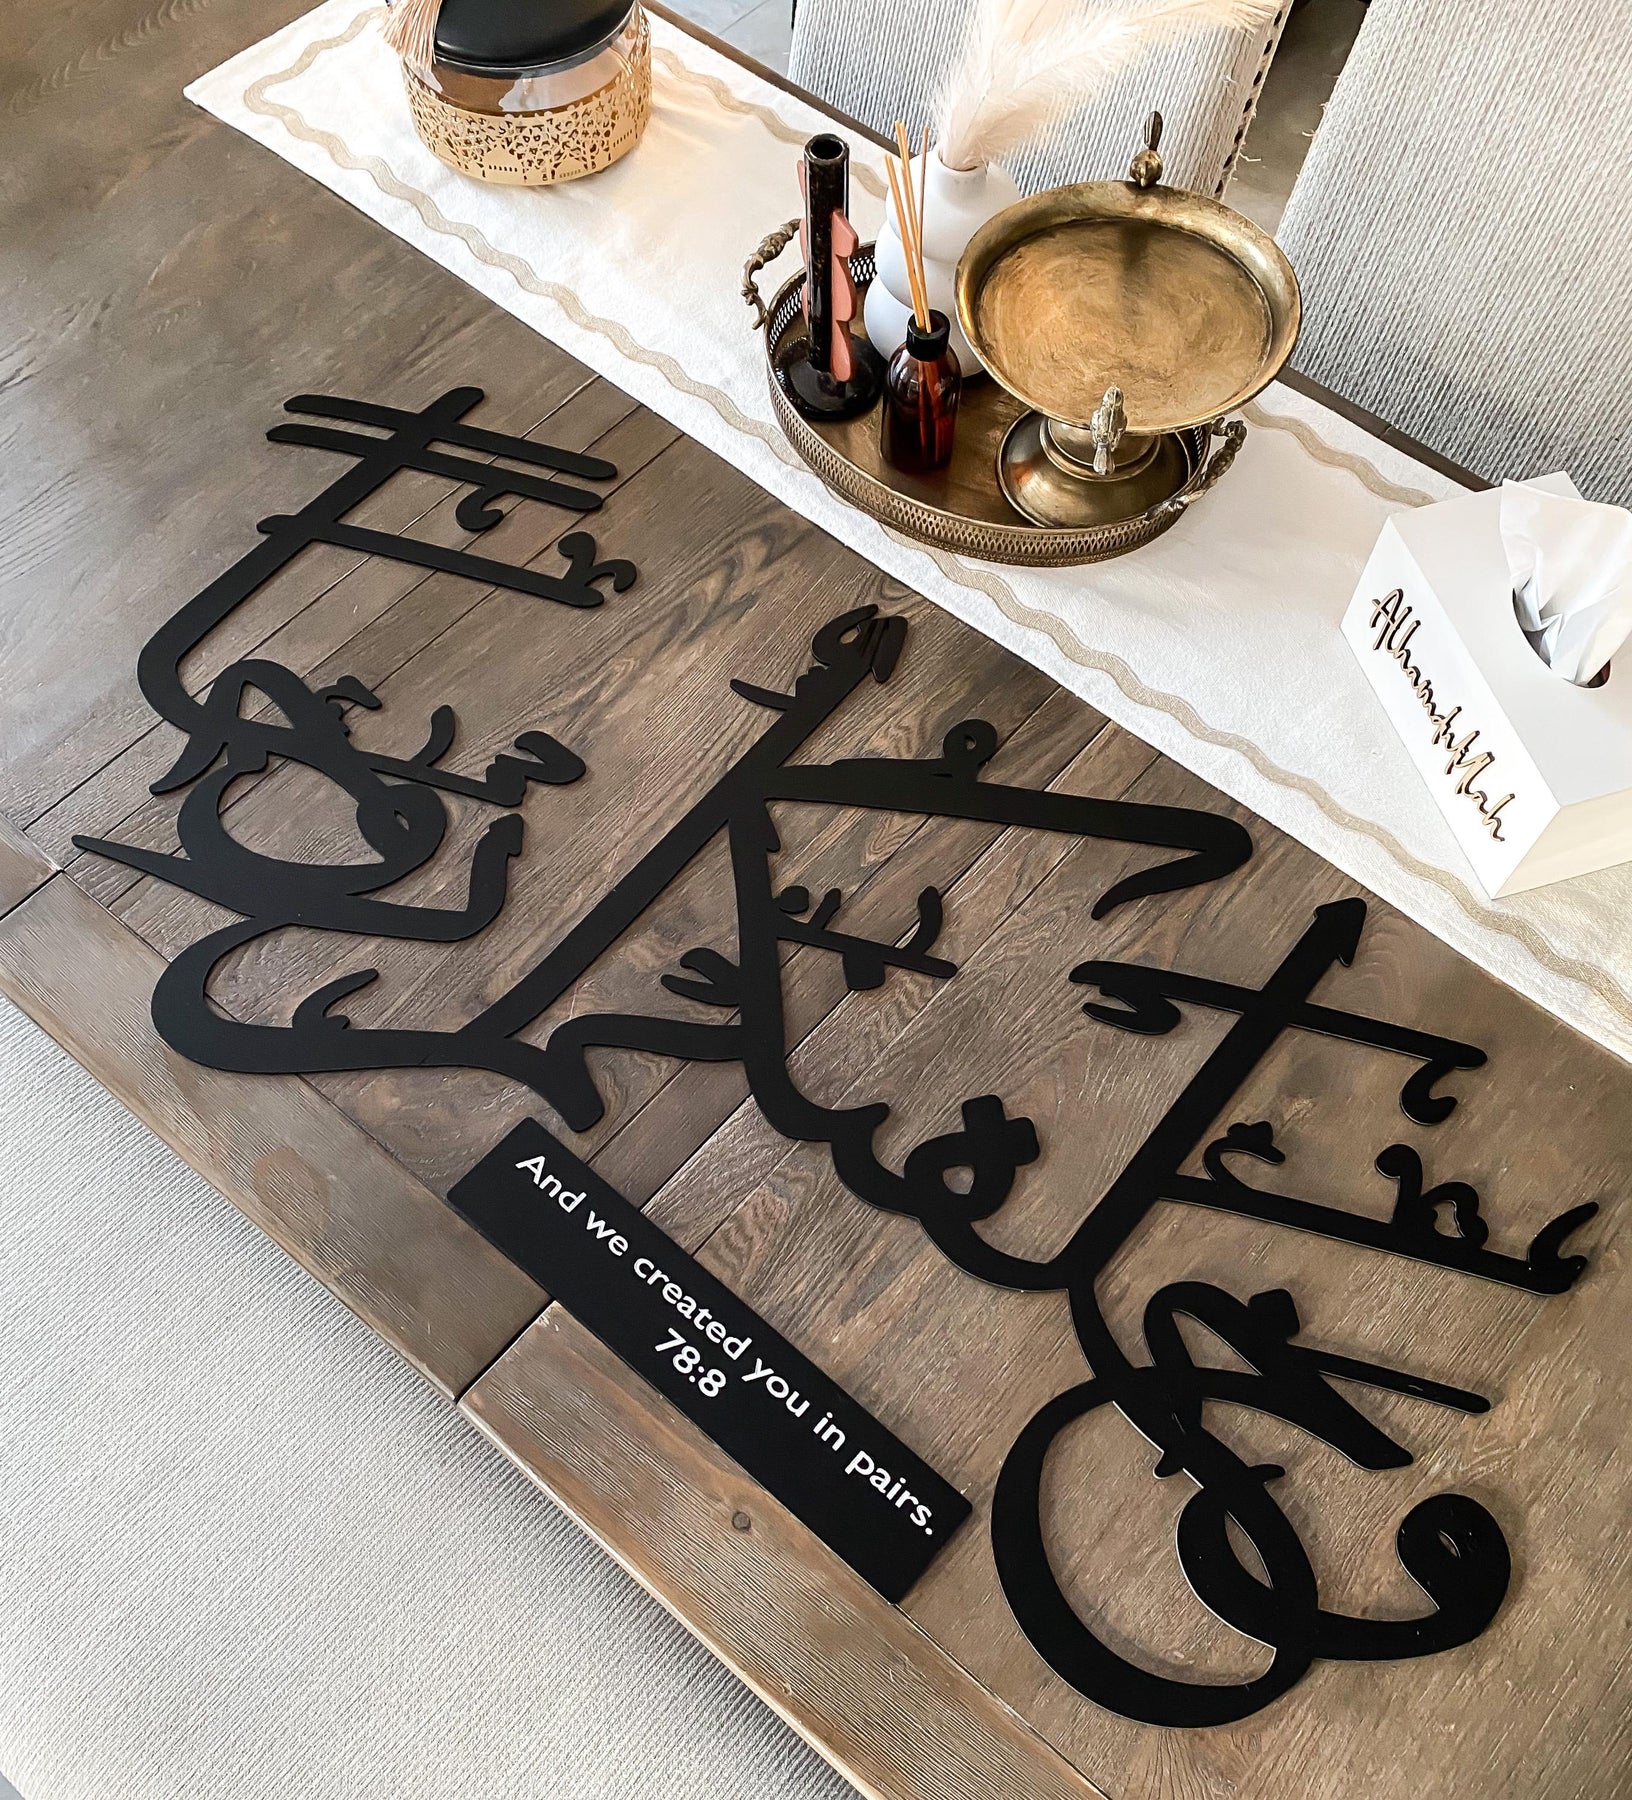 وخلقناكم أزواجا
And we created you in pairs.
78:8
Alhamdulillah